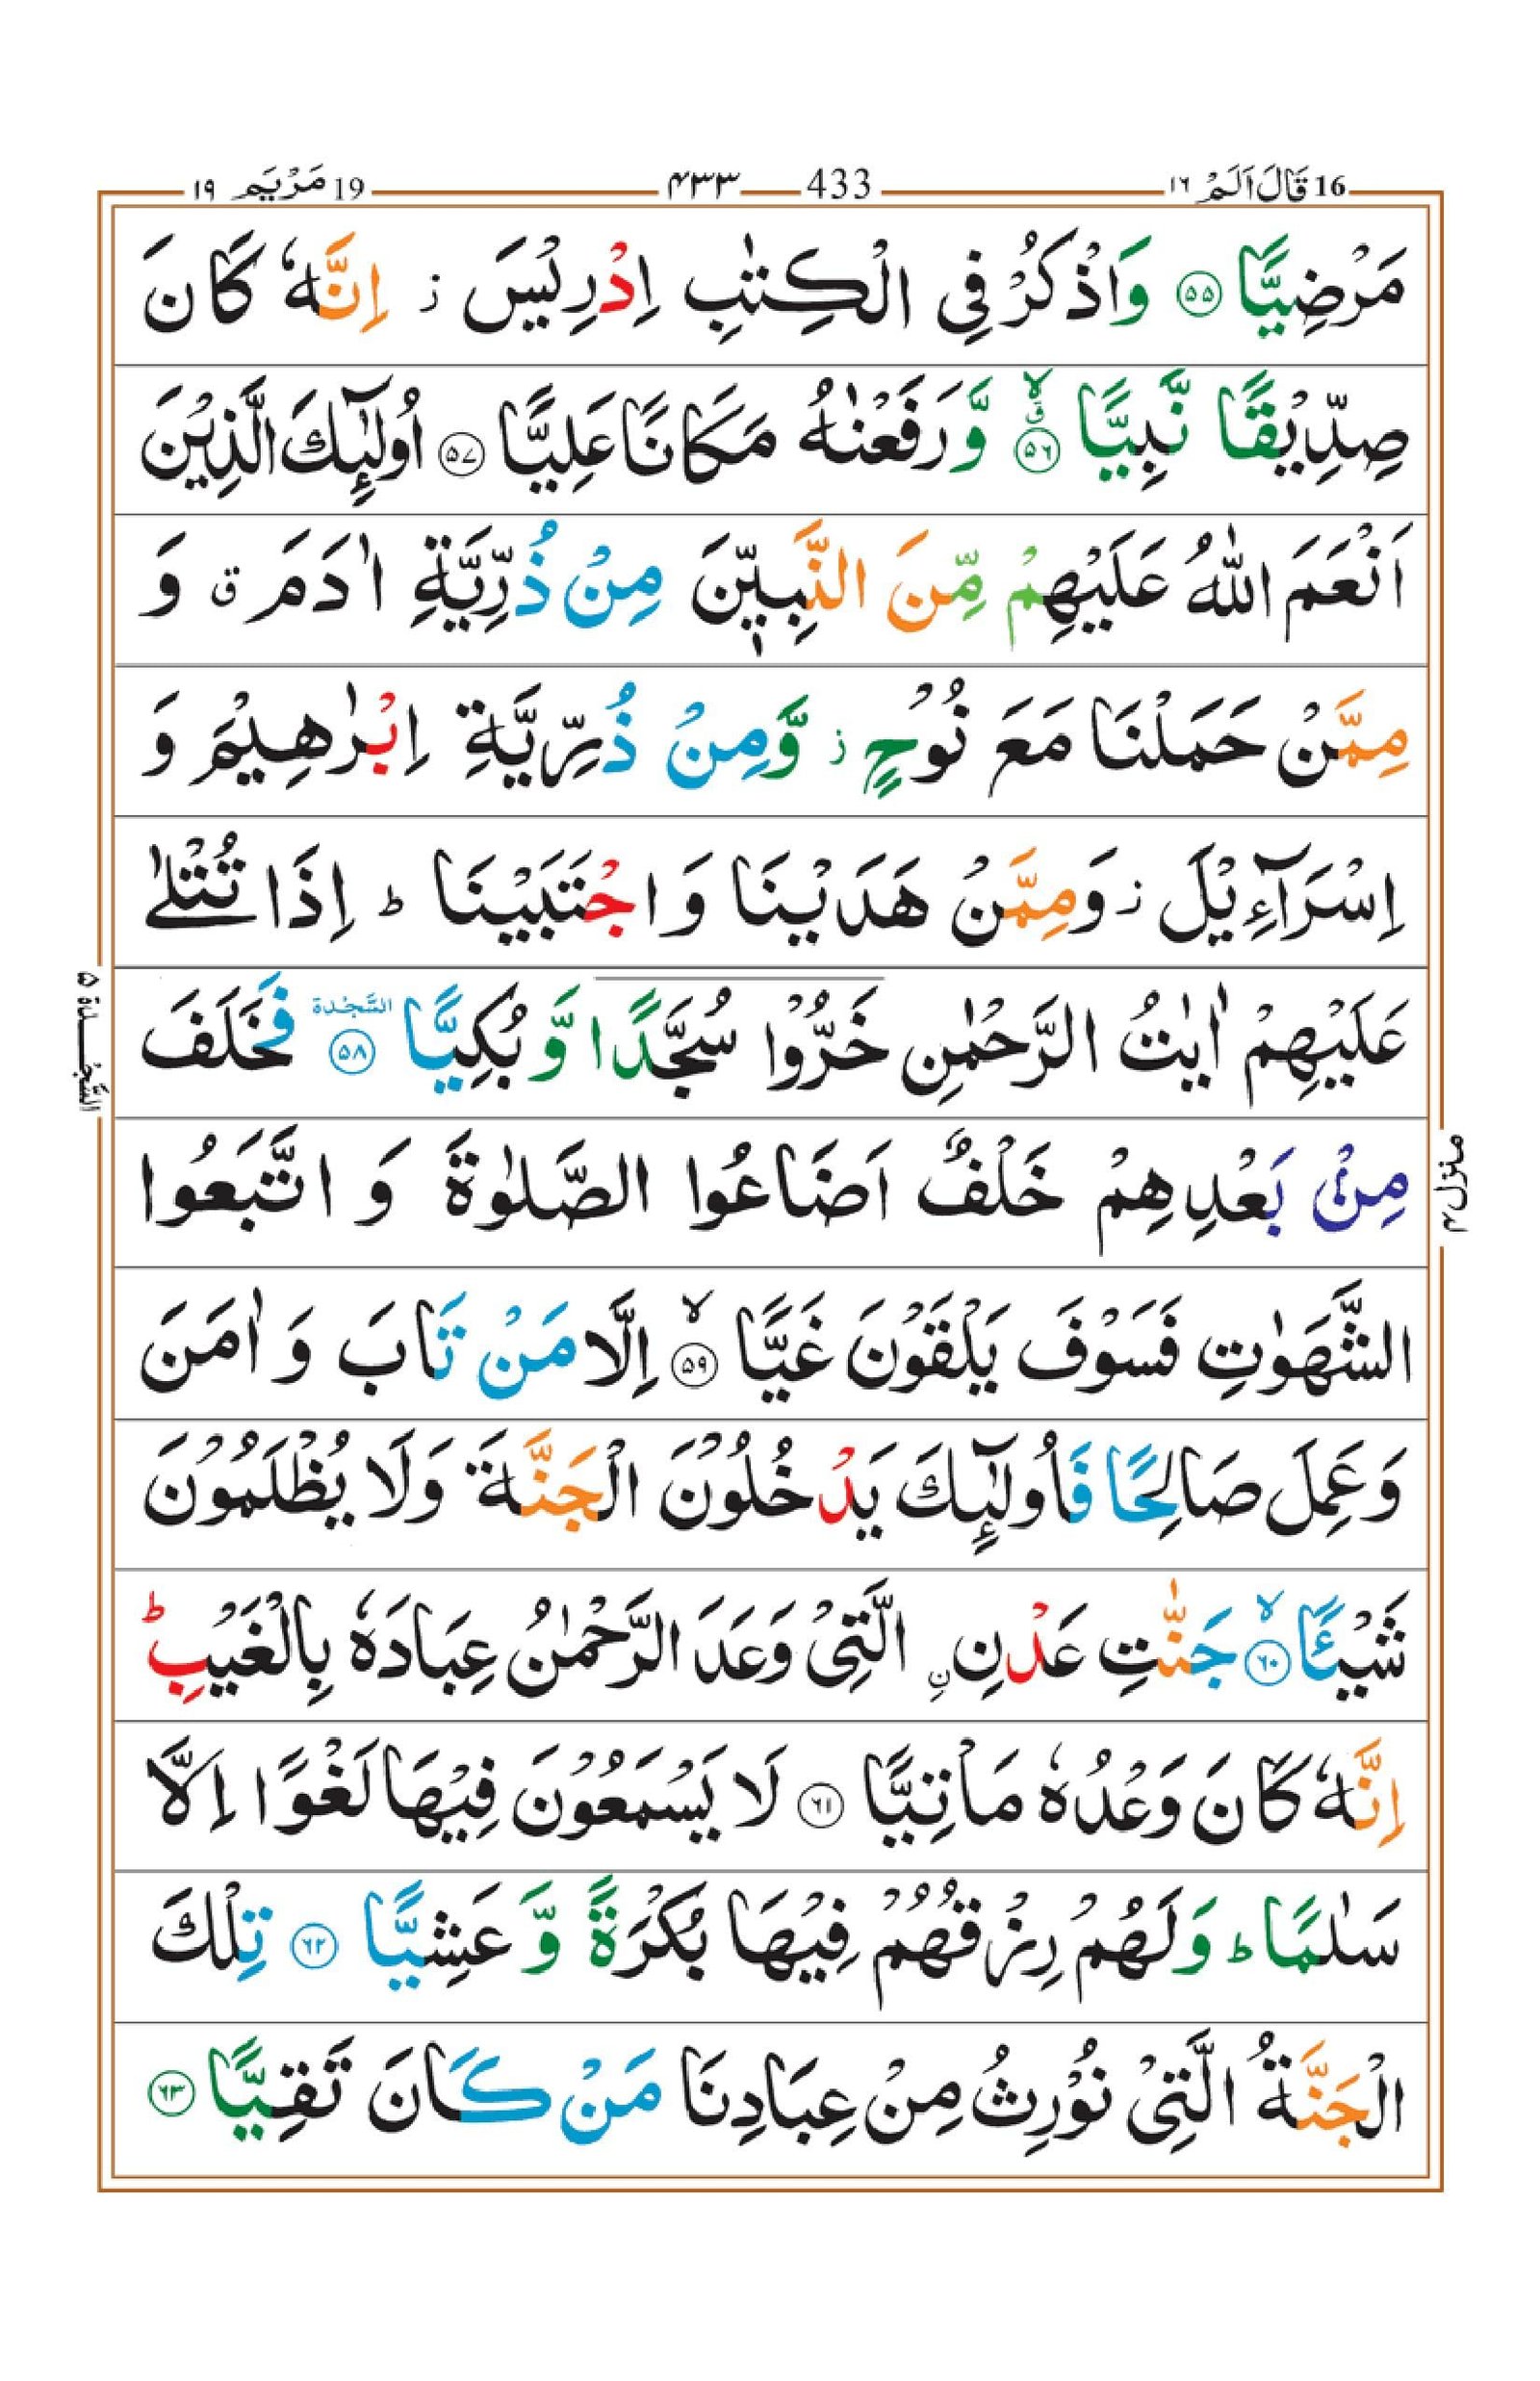 16 قَالَ اَلَمْ ١٦ 433 ۴۳۳ 19 مَرْيَم ١٩
مَرْضِيًّا ۵۵ وَاذْكُرْ فِي الْكِتٰبِ اِدْرِيْسَ ز اِنَّهٗ كَانَ
صِدِّيْقًا نَّبِيًّا ۵۶ ق لا وَّرَفَعْنٰهُ مَكَانًا عَلِيًّا ۵۷ اُولٰٓئِكَ الَّذِيْنَ
اَنْعَمَ اللّٰهُ عَلَيْهِمْ مِّنَ النَّبِيّٖنَ مِنْ ذُرِّيَّةِ اٰدَمَ ق وَ
مِمَّنْ حَمَلْنَا مَعَ نُوْحٍ ز وَّمِنْ ذُرِّيَّةِ اِبْرٰهِيْمَ وَ
اِسْرَآءِيْلَ ز وَمِمَّنْ هَدَيْنَا وَاجْتَبَيْنَا ط اِذَا تُتْلٰى
عَلَيْهِمْ اٰيٰتُ الرَّحْمٰنِ خَرُّوْا سُجَّدًا وَّبُكِيًّا ۵۸ السَّجْدة فَخَلَفَ
السَّجْدة ۵
مِنْۢ بَعْدِهِمْ خَلْفٌ اَضَاعُوا الصَّلٰوةَ وَاتَّبَعُوا
منزل ۴
الشَّهَوٰتِ فَسَوْفَ يَلْقَوْنَ غَيًّا ۵۹ لا اِلَّا مَنْ تَابَ وَاٰمَنَ
وَعَمِلَ صَالِحًا فَاُولٰٓئِكَ يَدْخُلُوْنَ الْجَنَّةَ وَلَا يُظْلَمُوْنَ
شَيْـًٔا ۶۰ لا جَنّٰتِ عَدْنِ نِ الَّتِيْ وَعَدَ الرَّحْمٰنُ عِبَادَهٗ بِالْغَيْبِ ط
اِنَّهٗ كَانَ وَعْدُهٗ مَاْتِيًّا ۶۱ لَا يَسْمَعُوْنَ فِيْهَا لَغْوًا اِلَّا
سَلٰمًا ط وَلَهُمْ رِزْقُهُمْ فِيْهَا بُكْرَةً وَّعَشِيًّا ۶۲ تِلْكَ
الْجَنَّةُ الَّتِيْ نُوْرِثُ مِنْ عِبَادِنَا مَنْ كَانَ تَقِيًّا ۶۳